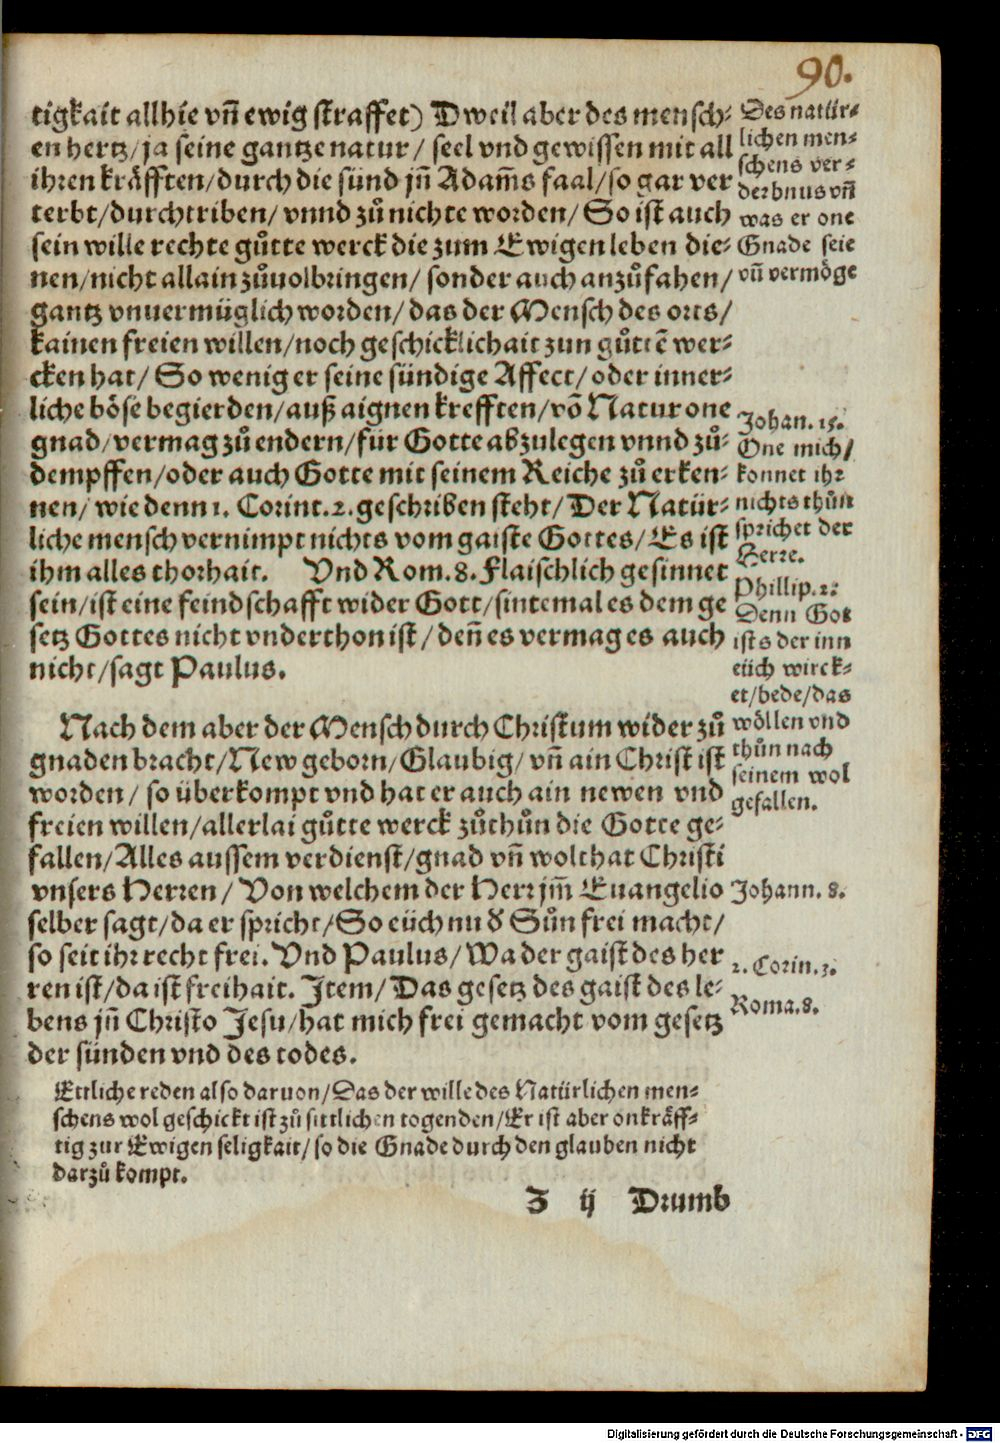 90.
tigkait allhie vñ ewig straffet) Dweil aber des mensch⸗
en hertz/ ja seine gantze natur/ seel vnd gewissen mit all
ihren kräfften/ durch die sünd jñ Adam̃s faal/ so gar ver
terbt/ durchtriben/ vnnd zů nichte worden/ So ist auch
sein wille rechte gůtte werck die zum Ewigen leben die⸗
nen/ nicht allain zůuolbringen/ sonder auch anzůfahen/
gantz vnuermüglich worden/ das der Mensch des orts/
kainen freien willen/ noch geschicklichait zun gůttē wer⸗
cken hat/ So wenig er seine sündige Affect/ oder inner⸗
liche böse begierden/ auß aignen krefften/ võ Natur one
gnad/ vermag zů endern/ für Gotte abzulegen vnnd zů⸗
dempffen/ oder auch Gotte mit seinem Reiche zů erken⸗
nen/ wie denn 1. Corint. 2. geschriben steht/ Der Natür⸗
liche mensch vernimpt nichts vom gaiste Gottes/ Es ist
ihm alles thorhait. Vnd Rom. 8. Flaischlich gesinnet
sein/ ist eine feindschafft wider Gott/ sintemal es dem ge
setz Gottes nicht vnderthon ist/ deñ es vermag es auch
nicht/ sagt Paulus.
Des natür⸗
lichen men⸗
schens ver⸗
derbnus vñ
was er one
Gnade seie
vñ vermöge
Johan. 15.
One mich/
konnet ihr
nichts thůn
sprichet der
Herre.
Phillip. 2:
Denn Got
ists der inn
eüch wirck⸗
et/ bede/ das
wöllen vnd
thůn nach
seinem wol
gefallen.
Nach dem aber der Mensch durch Christum wider zů
gnaden bracht/ New geborn/ Glaubig/ vñ ain Christ ist
worden/ so überkompt vnd hat er auch ain newen vnd
freien willen/ allerlai gůtte werck zůthůn die Gotte ge⸗
fallen/ Alles aussem verdienst/ gnad vñ wolthat Christi
vnsers Herren/ Von welchem der Herr jm̃ Euangelio
selber sagt/ da er spricht/ So eüch nu ď Sůn frei macht/
so seit ihr recht frei. Vnd Paulus/ Wa der gaist des her
ren ist/ da ist freihait. Item/ Das gesetz des gaist des le⸗
bens jñ Christo Jesu/ hat mich frei gemacht vom gesetz
der sünden vnd des todes.
Johann. 8.
2. Corin. 3.
Roma. 8.
Ettliche reden also daruon/ Das der wille des Natürlichen men⸗
schens wol geschickt ist zů sittlichen togenden/ Er ist aber onkräff⸗
tig zur Ewigen seligkait/ so die Gnade durch den glauben nicht
darzů kompt.
Z ij Drumb
Digitalisierung gefördert durch die Deutsche Forschungsgemeinschaft - DFG